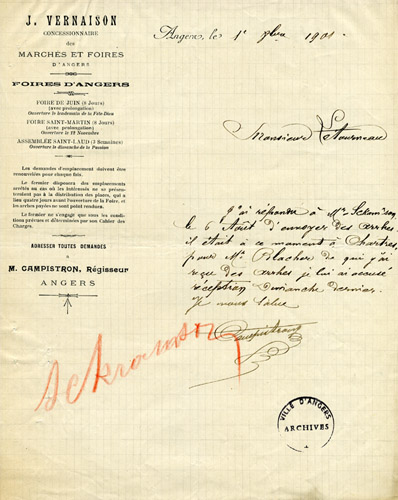 J. VERNAISON
CONCESSIONNAIRE
des
MARCHÉS ET FOIRES
D'ANGERS
FOIRES D'ANGERS
FOIRE DE JUIN (8 Jours)
(avec prolongation)
Ouverture le lendemain de la Fête-Dieu
FOIRE SAINT-MARTIN (8 Jours)
(avec prolongation)
Ouverture le 12 Novembre
ASSEMBLÉE SAINT-LAUD (3 Semaines)
Ouverture le dimanche de la Passion
Les demandes d'emplacement doivent être
renouvelées pour chaque fois.
Le fermier disposera des emplacements
arrêtés au cas où les intéressés ne se présente-
raient pas à la distribution des places, qui a
lieu quatre jours avant l'ouverture de la Foire, et
les arrhes payées ne sont point rendues.
Le fermier ne s'engage que sous les condi-
tions prévues et déterminées par son Cahier des
Charges.
ADRESSER TOUTES DEMANDES
A
M. CAMPISTRON, Régisseur
ANGERS
Angers, le 1er 7bre 1901
Monsieur Létourneau
J'ai répondu à Mr Sckramson
le 6 Août d'envoyer des arrhes
il était à ce moment à Chartres,
pour Mr Blacher de qui j'ai
reçu des arrhes je lui ai accusé
réception dimanche dernier.
Je vous salue
Campistron
Sckramson
VILLE D'ANGERS
ARCHIVES